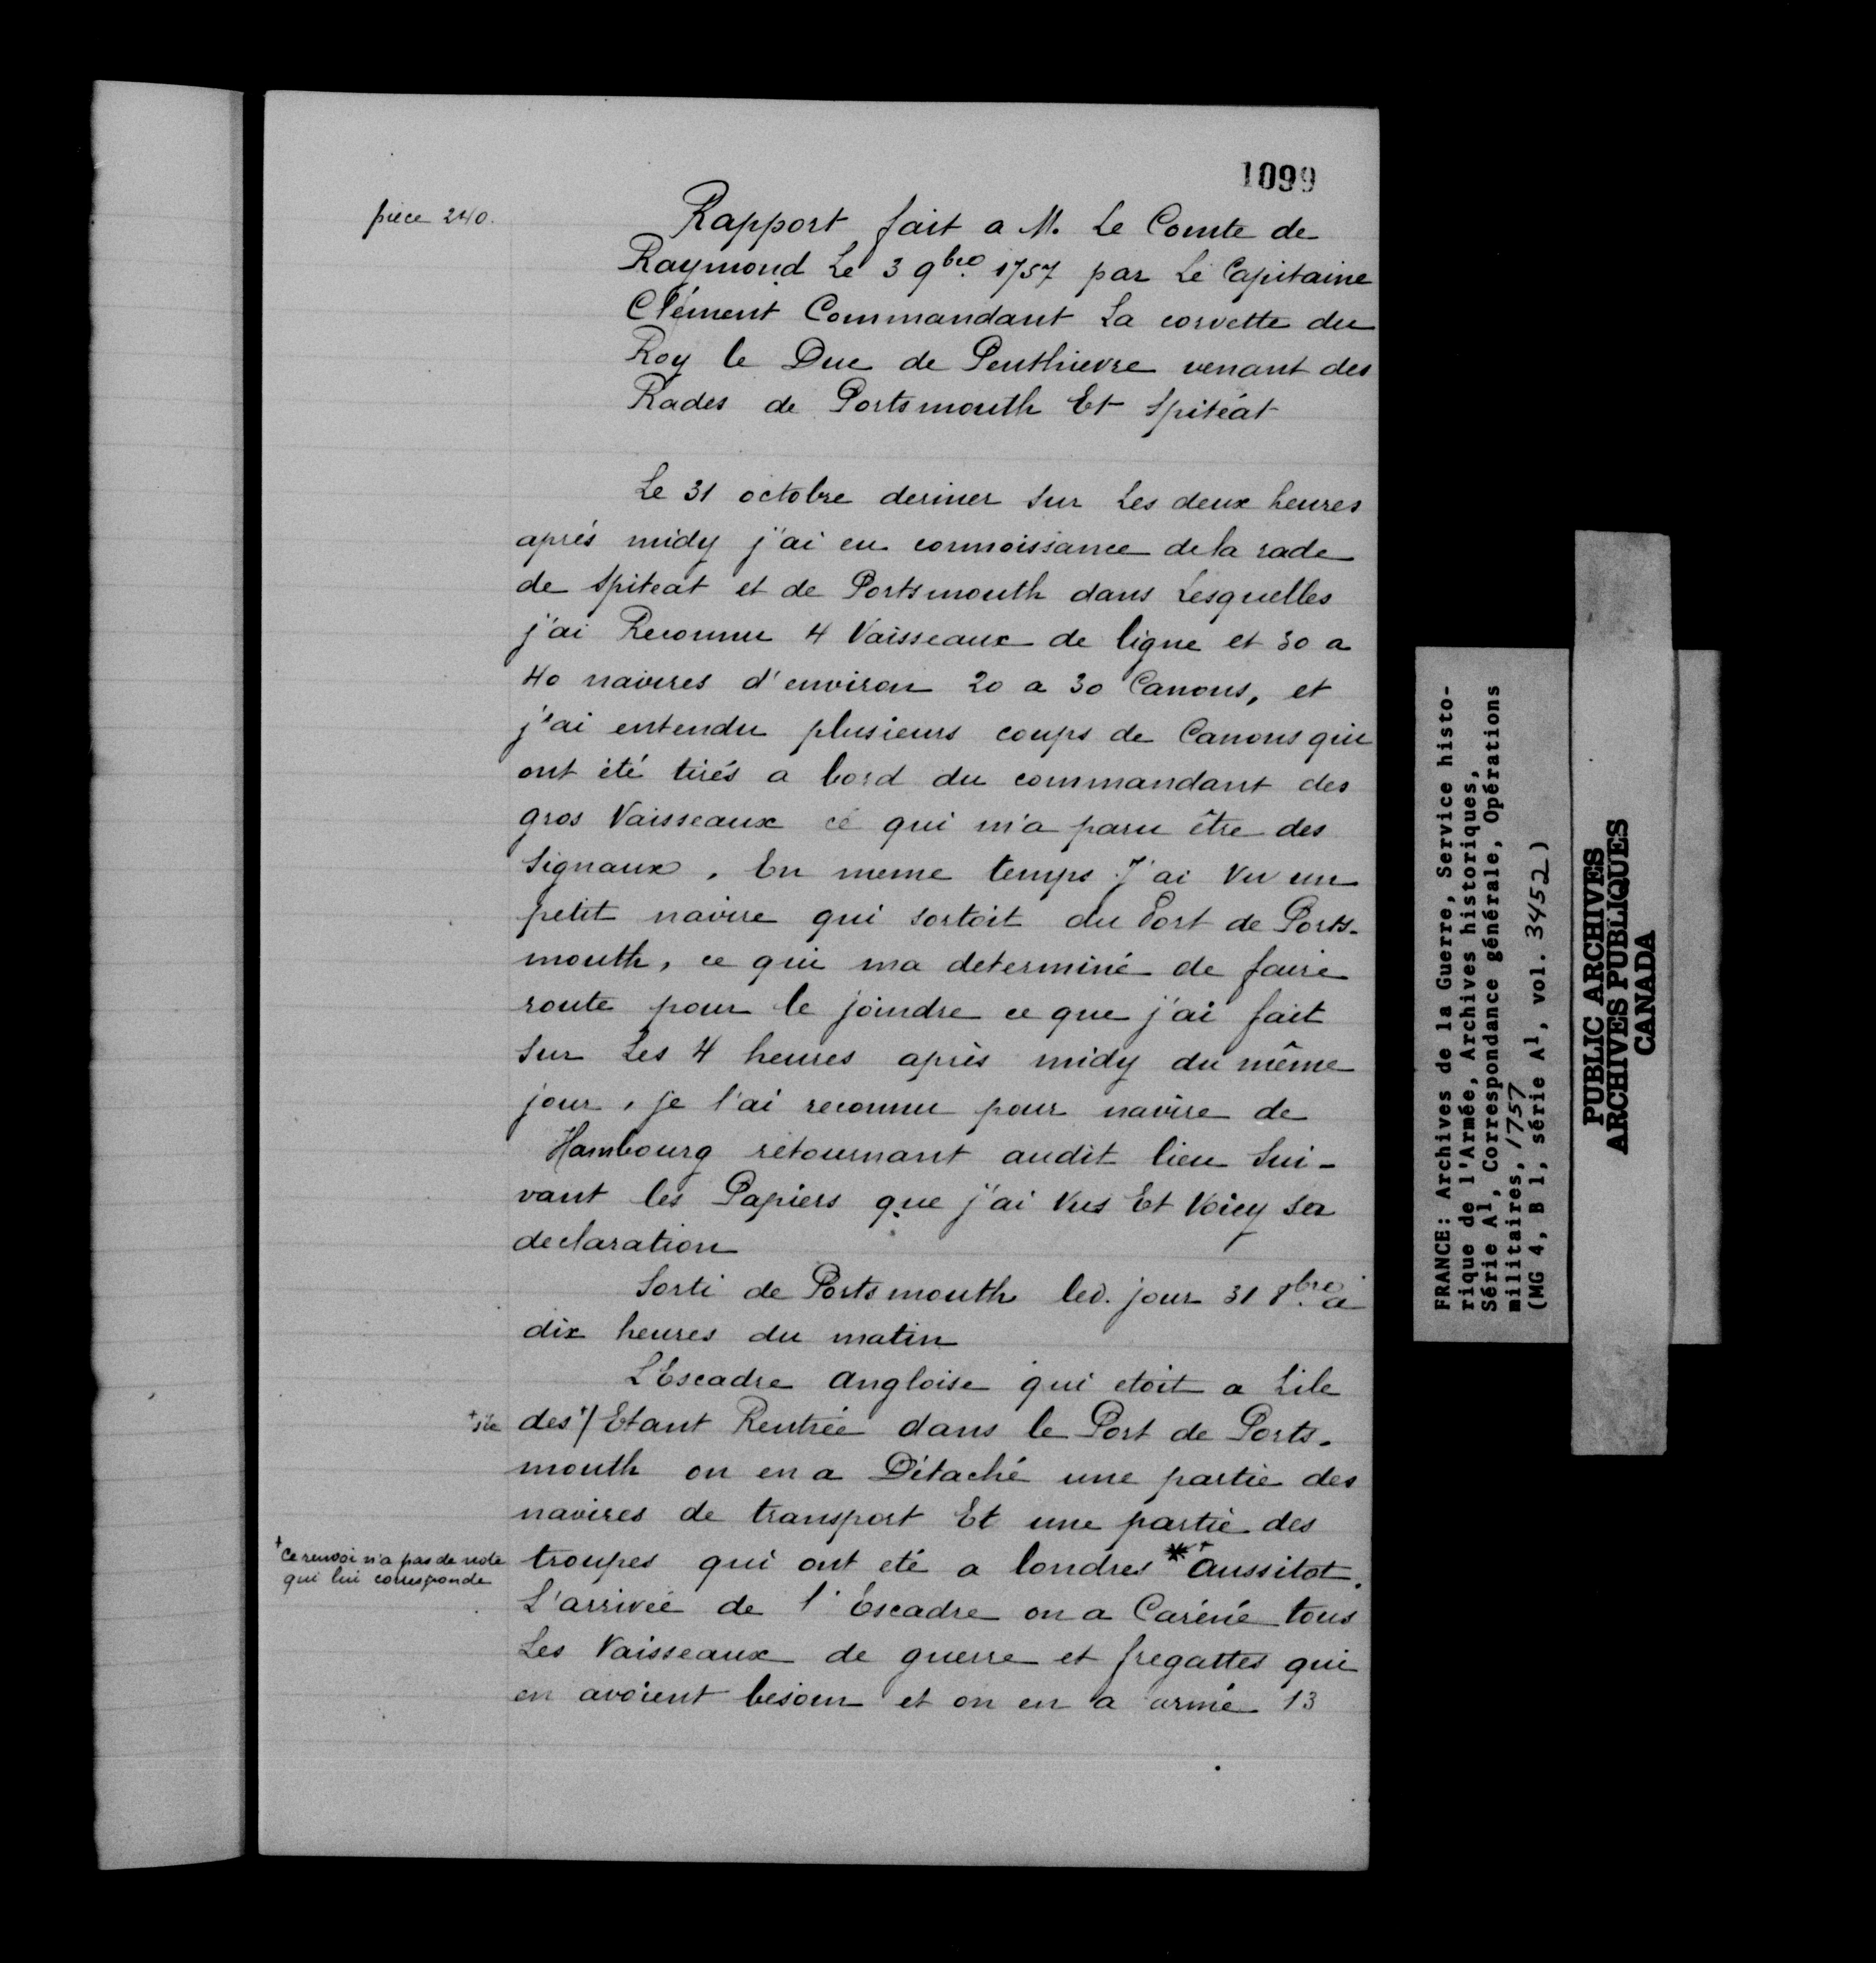 1099
pièce 240.
Rapport fait a M. Le Comte de
Raymond Le 3 9bre 1757 par Le Capitaine
Clément Commandant La corvette du
Roy le Duc de Penthievre venant des
Rades de Portsmouth Et Spiteat
Le 31 octobre dernier Sur Les deux heures
après midy j'ai eu connoissance de la rade
de Spiteat et de Portsmouth dans Lesquelles
j'ai Reconnu 4 Vaisseaux de ligne et 30 a
40 navires d'environ 20 a 30 Canons, et
j'ai entendu plusieurs coups de Canons qui
ont été tirés a bord du commandant des
gros Vaisseaux ce qui m'a paru être des
Signaux. En meme temps J'ai Vu un
petit navire qui sortoit du Port de Ports-
mouth, ce qui ma determiné de faire
route pour le joindre ce que j'ai fait
Sur Les 4 heures après midy du même
jour, je l'ai reconnu pour navire de
Hambourg retournant audit lieu Sui-
vant les Papiers que j'ai Vus Et Voicy sa
declaration
Sorti de Portsmouth led. jour 31 8bre a
dix heures du matin
L'Escadre angloise qui etoit a Lile
+sic des +/ Etant Rentrée dans le Port de Ports-
mouth on en a Détaché une partie des
navires de transport Et une partie des
troupes qui ont eté a londres *+ aussitot
+ce renvoi n'a pas de note
qui lui corresponde
L'arrivée de l'Escadre on a Caréné tous
Les Vaisseaux de guerre et fregattes qui
en avoient besoin et on en a armé 13
FRANCE: Archives de la Guerre, Service histo-
rique de l'Armée, Archives historiques,
Série A1, Correspondance générale, Opérations
militaires, 1757
(MG 4, B 1, série A1, vol. 3452)
PUBLIC ARCHIVES
ARCHIVES PUBLIQUES
CANADA